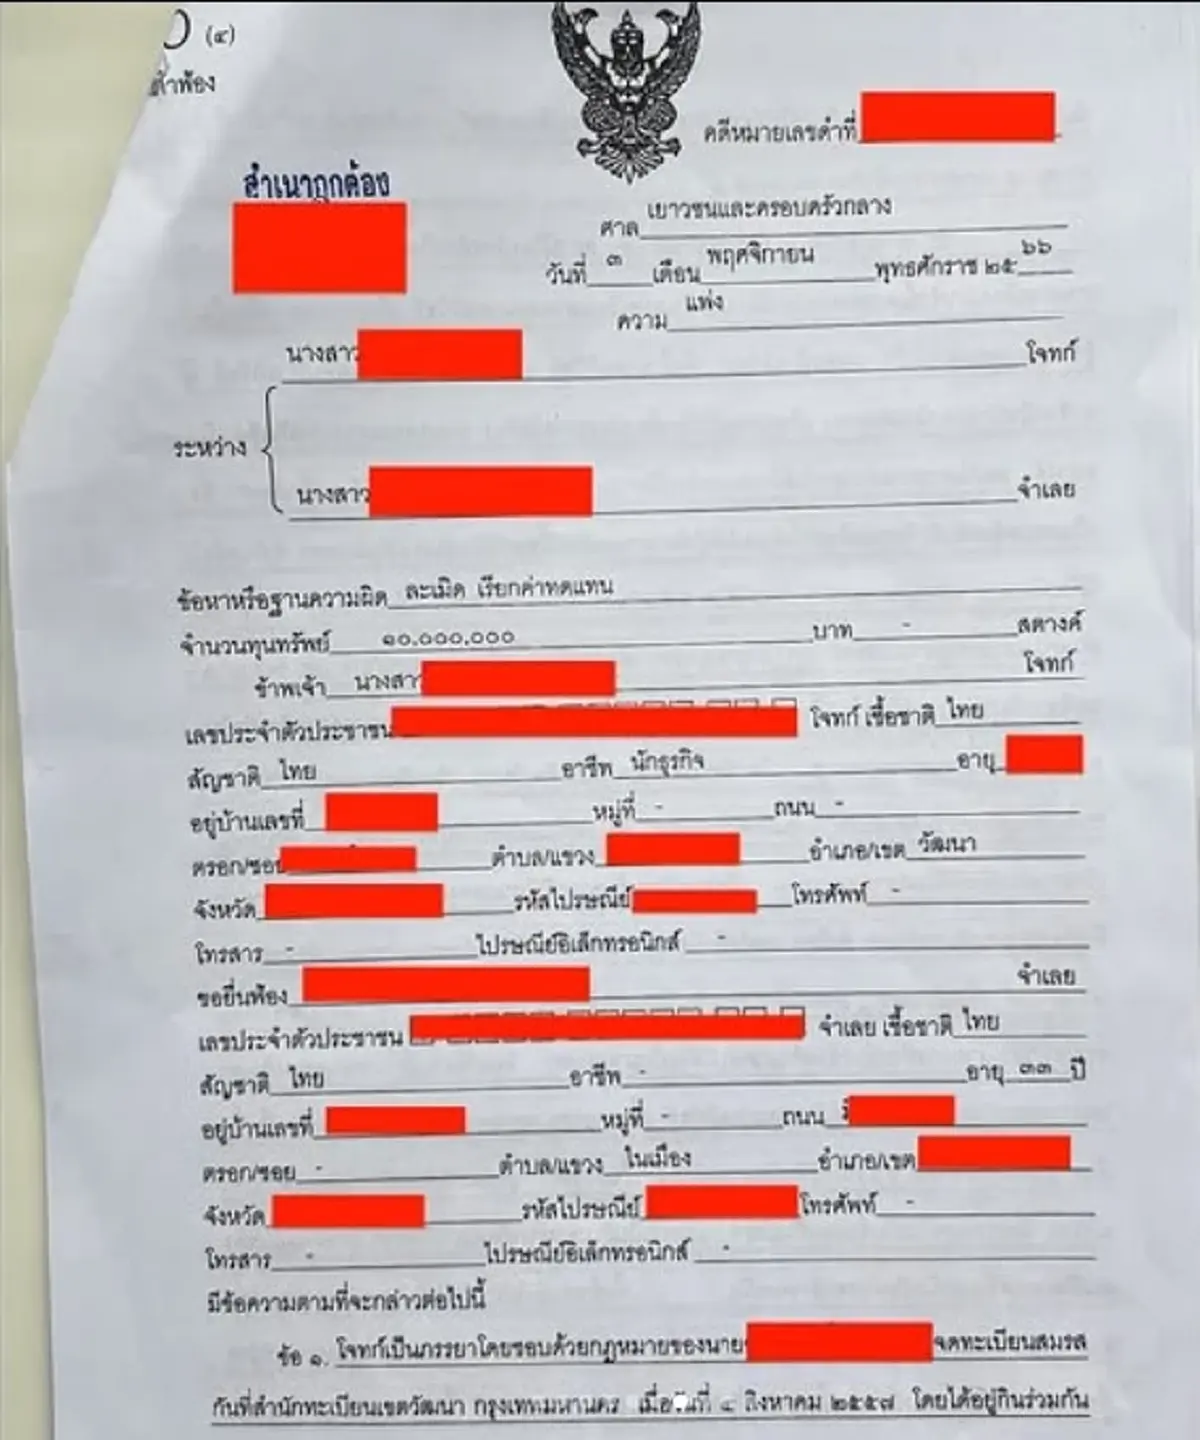 (๔)
คำฟ้อง
คดีหมายเลขดำที่
สำเนาถูกต้อง
ศาล เยาวชนและครอบครัวกลาง
วันที่ ๓ เดือน พฤศจิกายน พุทธศักราช ๒๕๖๖
ความ แพ่ง
นางสาว โจทก์
ระหว่าง
นางสาว จำเลย
ข้อหาหรือฐานความผิด ละเมิด เรียกค่าทดแทน
จำนวนทุนทรัพย์ ๑๐,๐๐๐,๐๐๐ บาท - สตางค์
ข้าพเจ้า นางสาว โจทก์
เลขประจำตัวประชาชน โจทก์ เชื้อชาติ ไทย
สัญชาติ ไทย อาชีพ นักธุรกิจ อายุ
อยู่บ้านเลขที่ หมู่ที่ - ถนน -
ตรอก/ซอย ตำบล/แขวง อำเภอ/เขต วัฒนา
จังหวัด รหัสไปรษณีย์ โทรศัพท์ -
โทรสาร - ไปรษณีย์อิเล็กทรอนิกส์ -
ขอยื่นฟ้อง จำเลย
เลขประจำตัวประชาชน จำเลย เชื้อชาติ ไทย
สัญชาติ ไทย อาชีพ - อายุ ๓๓ ปี
อยู่บ้านเลขที่ หมู่ที่ - ถนน
ตรอก/ซอย - ตำบล/แขวง ในเมือง อำเภอ/เขต
จังหวัด รหัสไปรษณีย์ โทรศัพท์ -
โทรสาร - ไปรษณีย์อิเล็กทรอนิกส์ -
มีข้อความตามที่จะกล่าวต่อไปนี้
ข้อ ๑. โจทก์เป็นภรรยาโดยชอบด้วยกฎหมายของนาย จดทะเบียนสมรส
กันที่สำนักทะเบียนเขตวัฒนา กรุงเทพมหานคร เมื่อวันที่ ๔ สิงหาคม ๒๕๕๗ โดยได้อยู่กินร่วมกัน